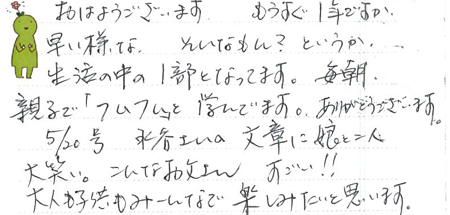 おはようございます もうすぐ1年ですか.
早い様な. そんなもん？というか..
生活の中の1部となってます。毎朝.
親子で「フムフム」と学んでます。ありがとうございます。
5/20号 水谷さんの文章に娘と二人
大笑い。こんなお父さん すごい!!
大人も子供もみーんなで楽しみたいと思います。